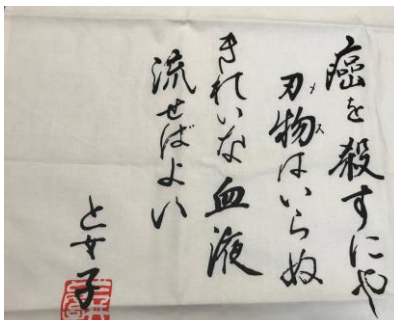 癌を殺すにや
刃物はいらぬ
メス
きれいな血液
流せばよい
と女子